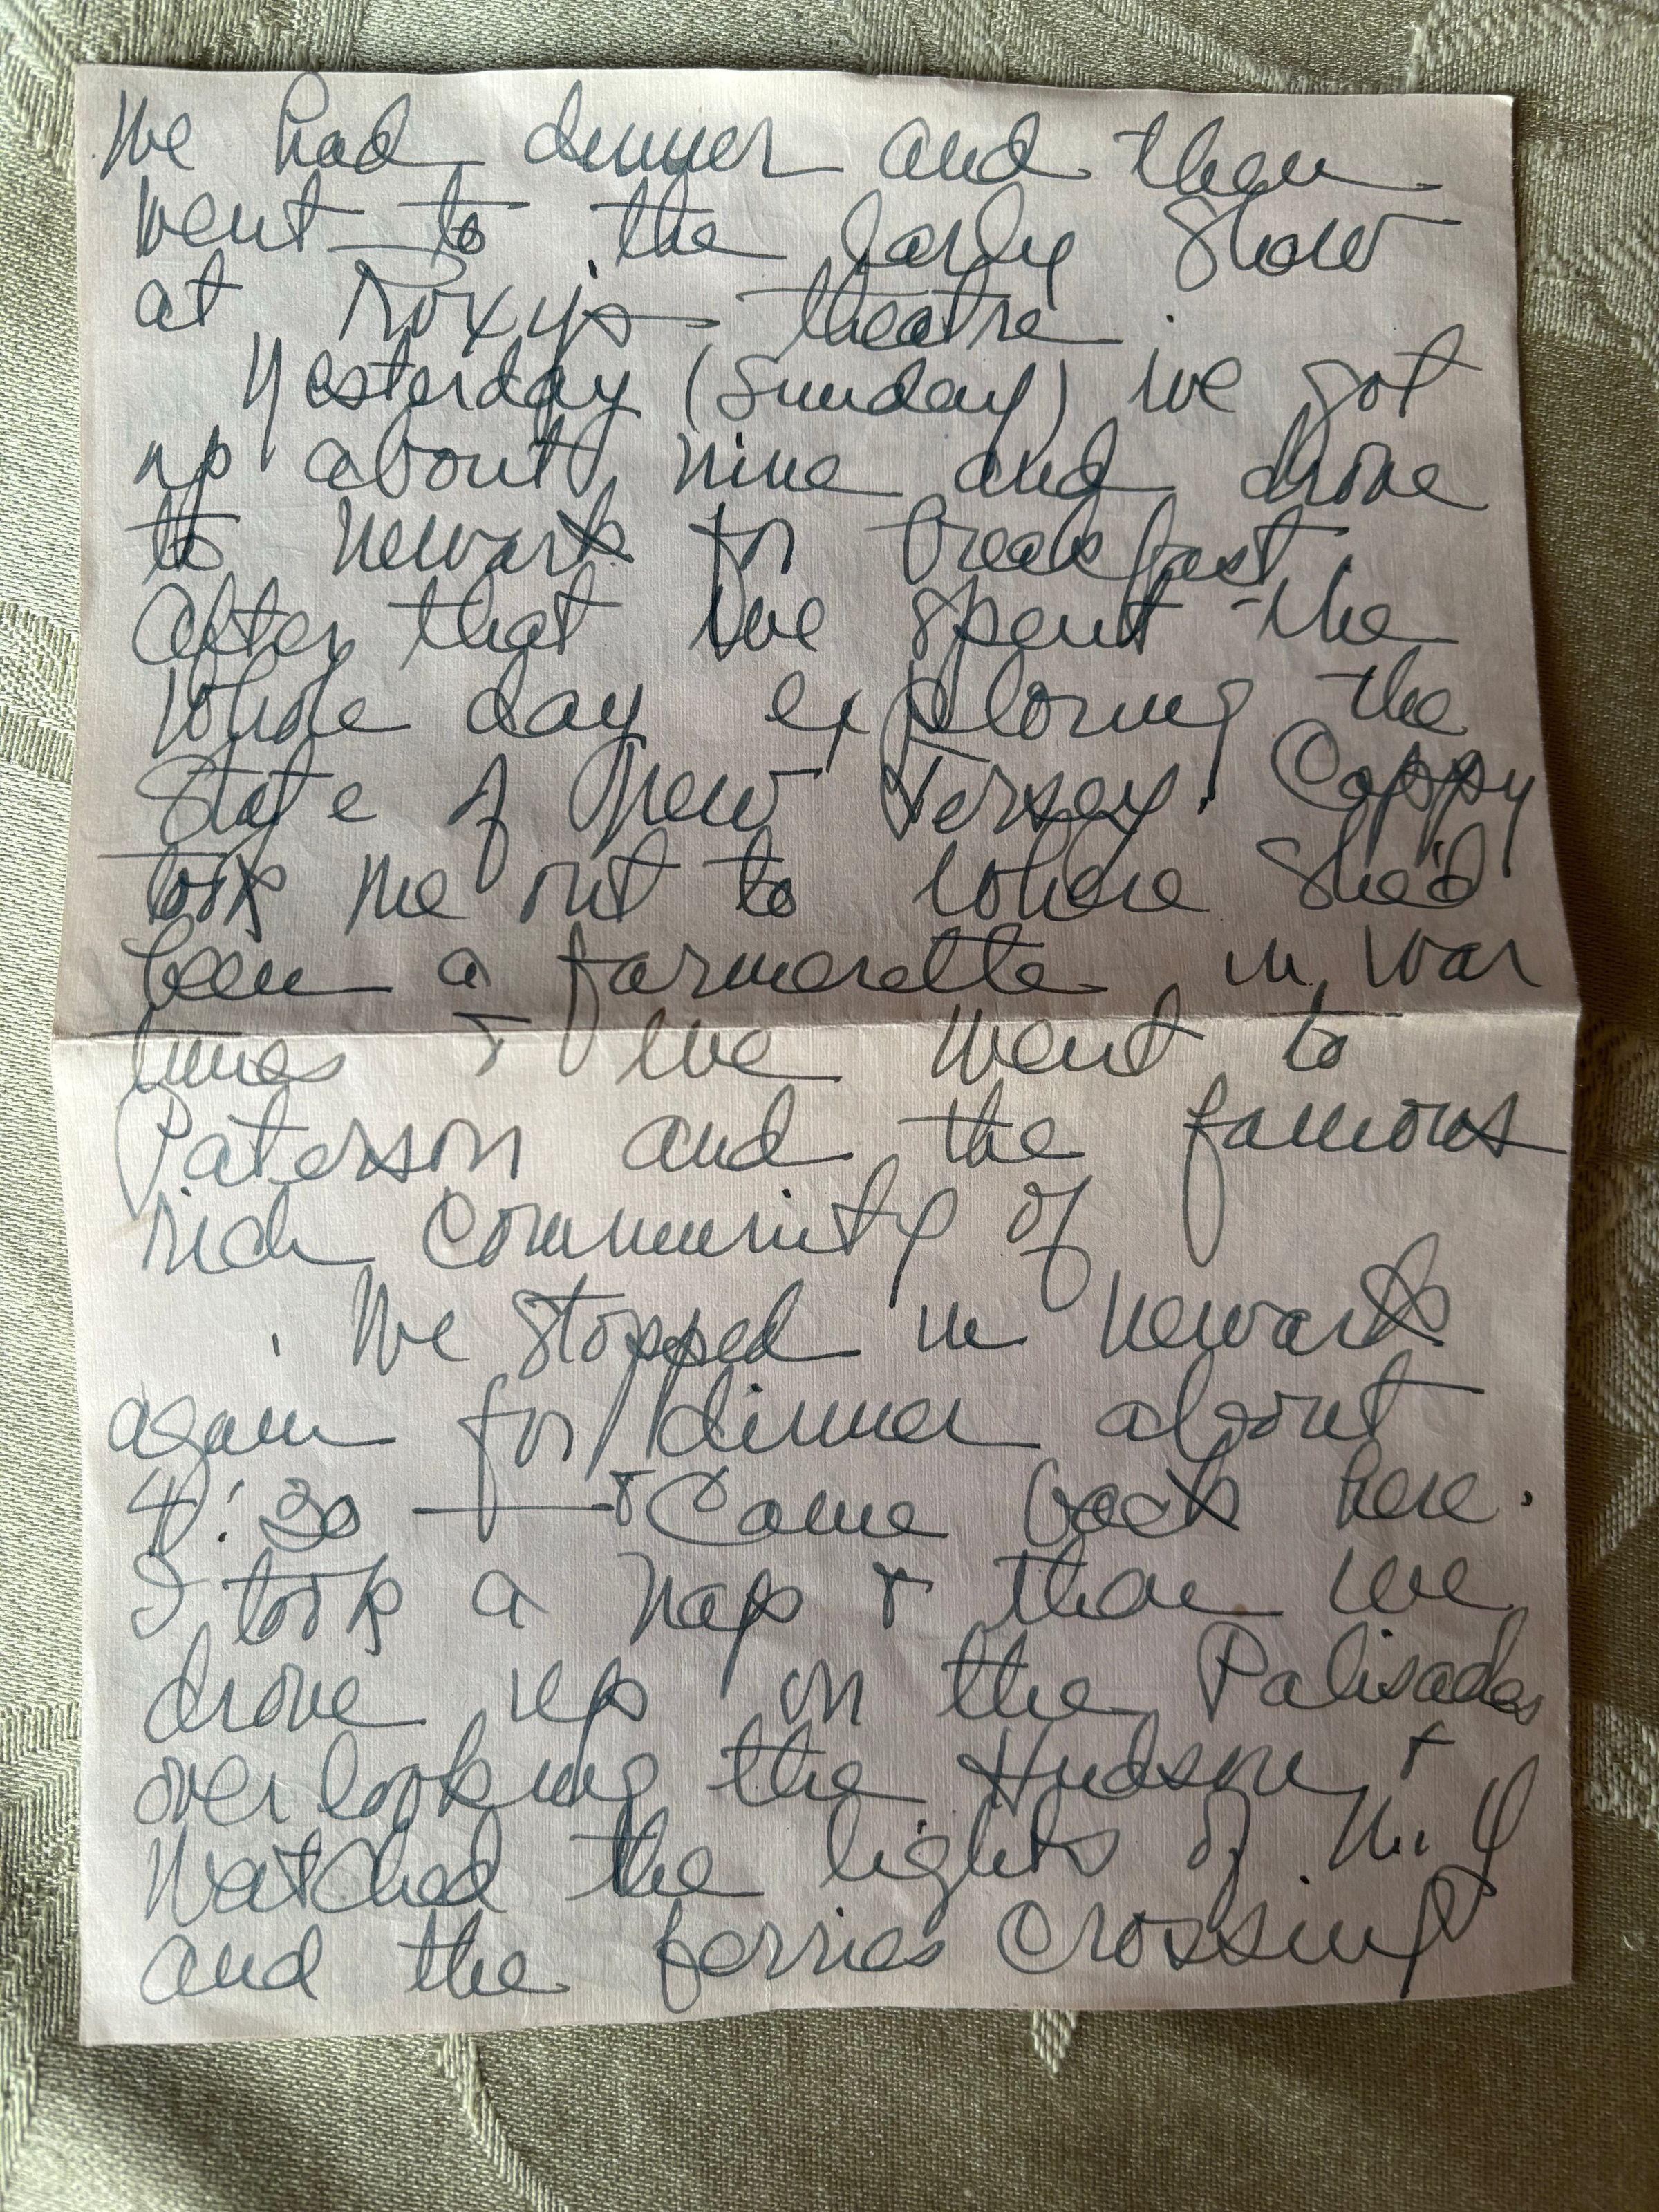 We had dinner and then
went to the early show
at Roxy's theatre.
Yesterday (Sunday) we got
up about nine and drove
to Newark for breakfast
After that we spent the
whole day exploring the
State of New Jersey. Cappy
took me out to where she'd
been a farmerette in war
times & we went to
Paterson and the famous
rich community of
. We stopped in Newark
again for dinner about
4:30 — & Came back here.
I took a nap & then we
drove up on the Palisades
overlooking the Hudson &
watched the lights of N.Y
and the ferries crossing